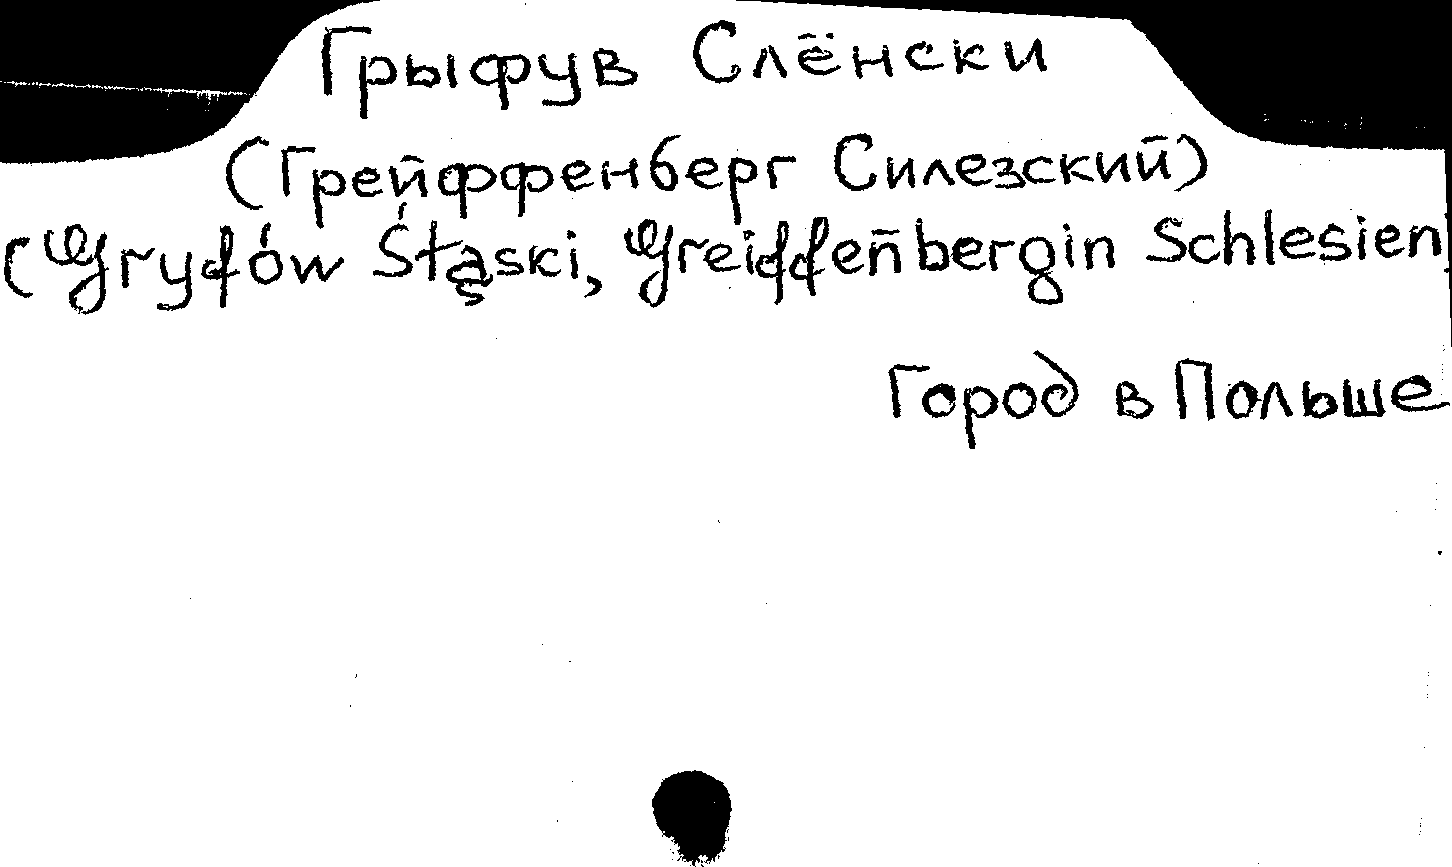 Грыфув Слёнски
(Грейффенберг Силезский)
(Gryfów Śląski, Greiffenberg in Schlesien)
Город в Польше